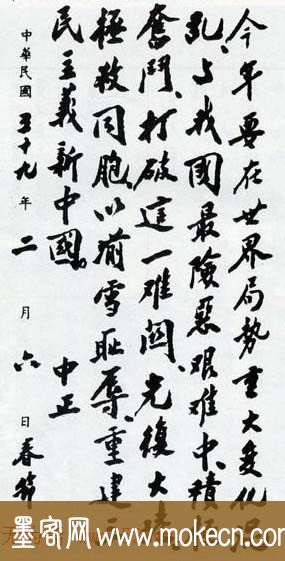 今年要在世界局勢重大變化混
亂、与我國最險惡艱難中、積極
奮鬥、打破這一难関、光復大陸
拯救同胞以湔雪恥辱、重建三
民主義新中國。 中正
中華民國五十九年二月六日春節
墨客网 www.mokecn.com